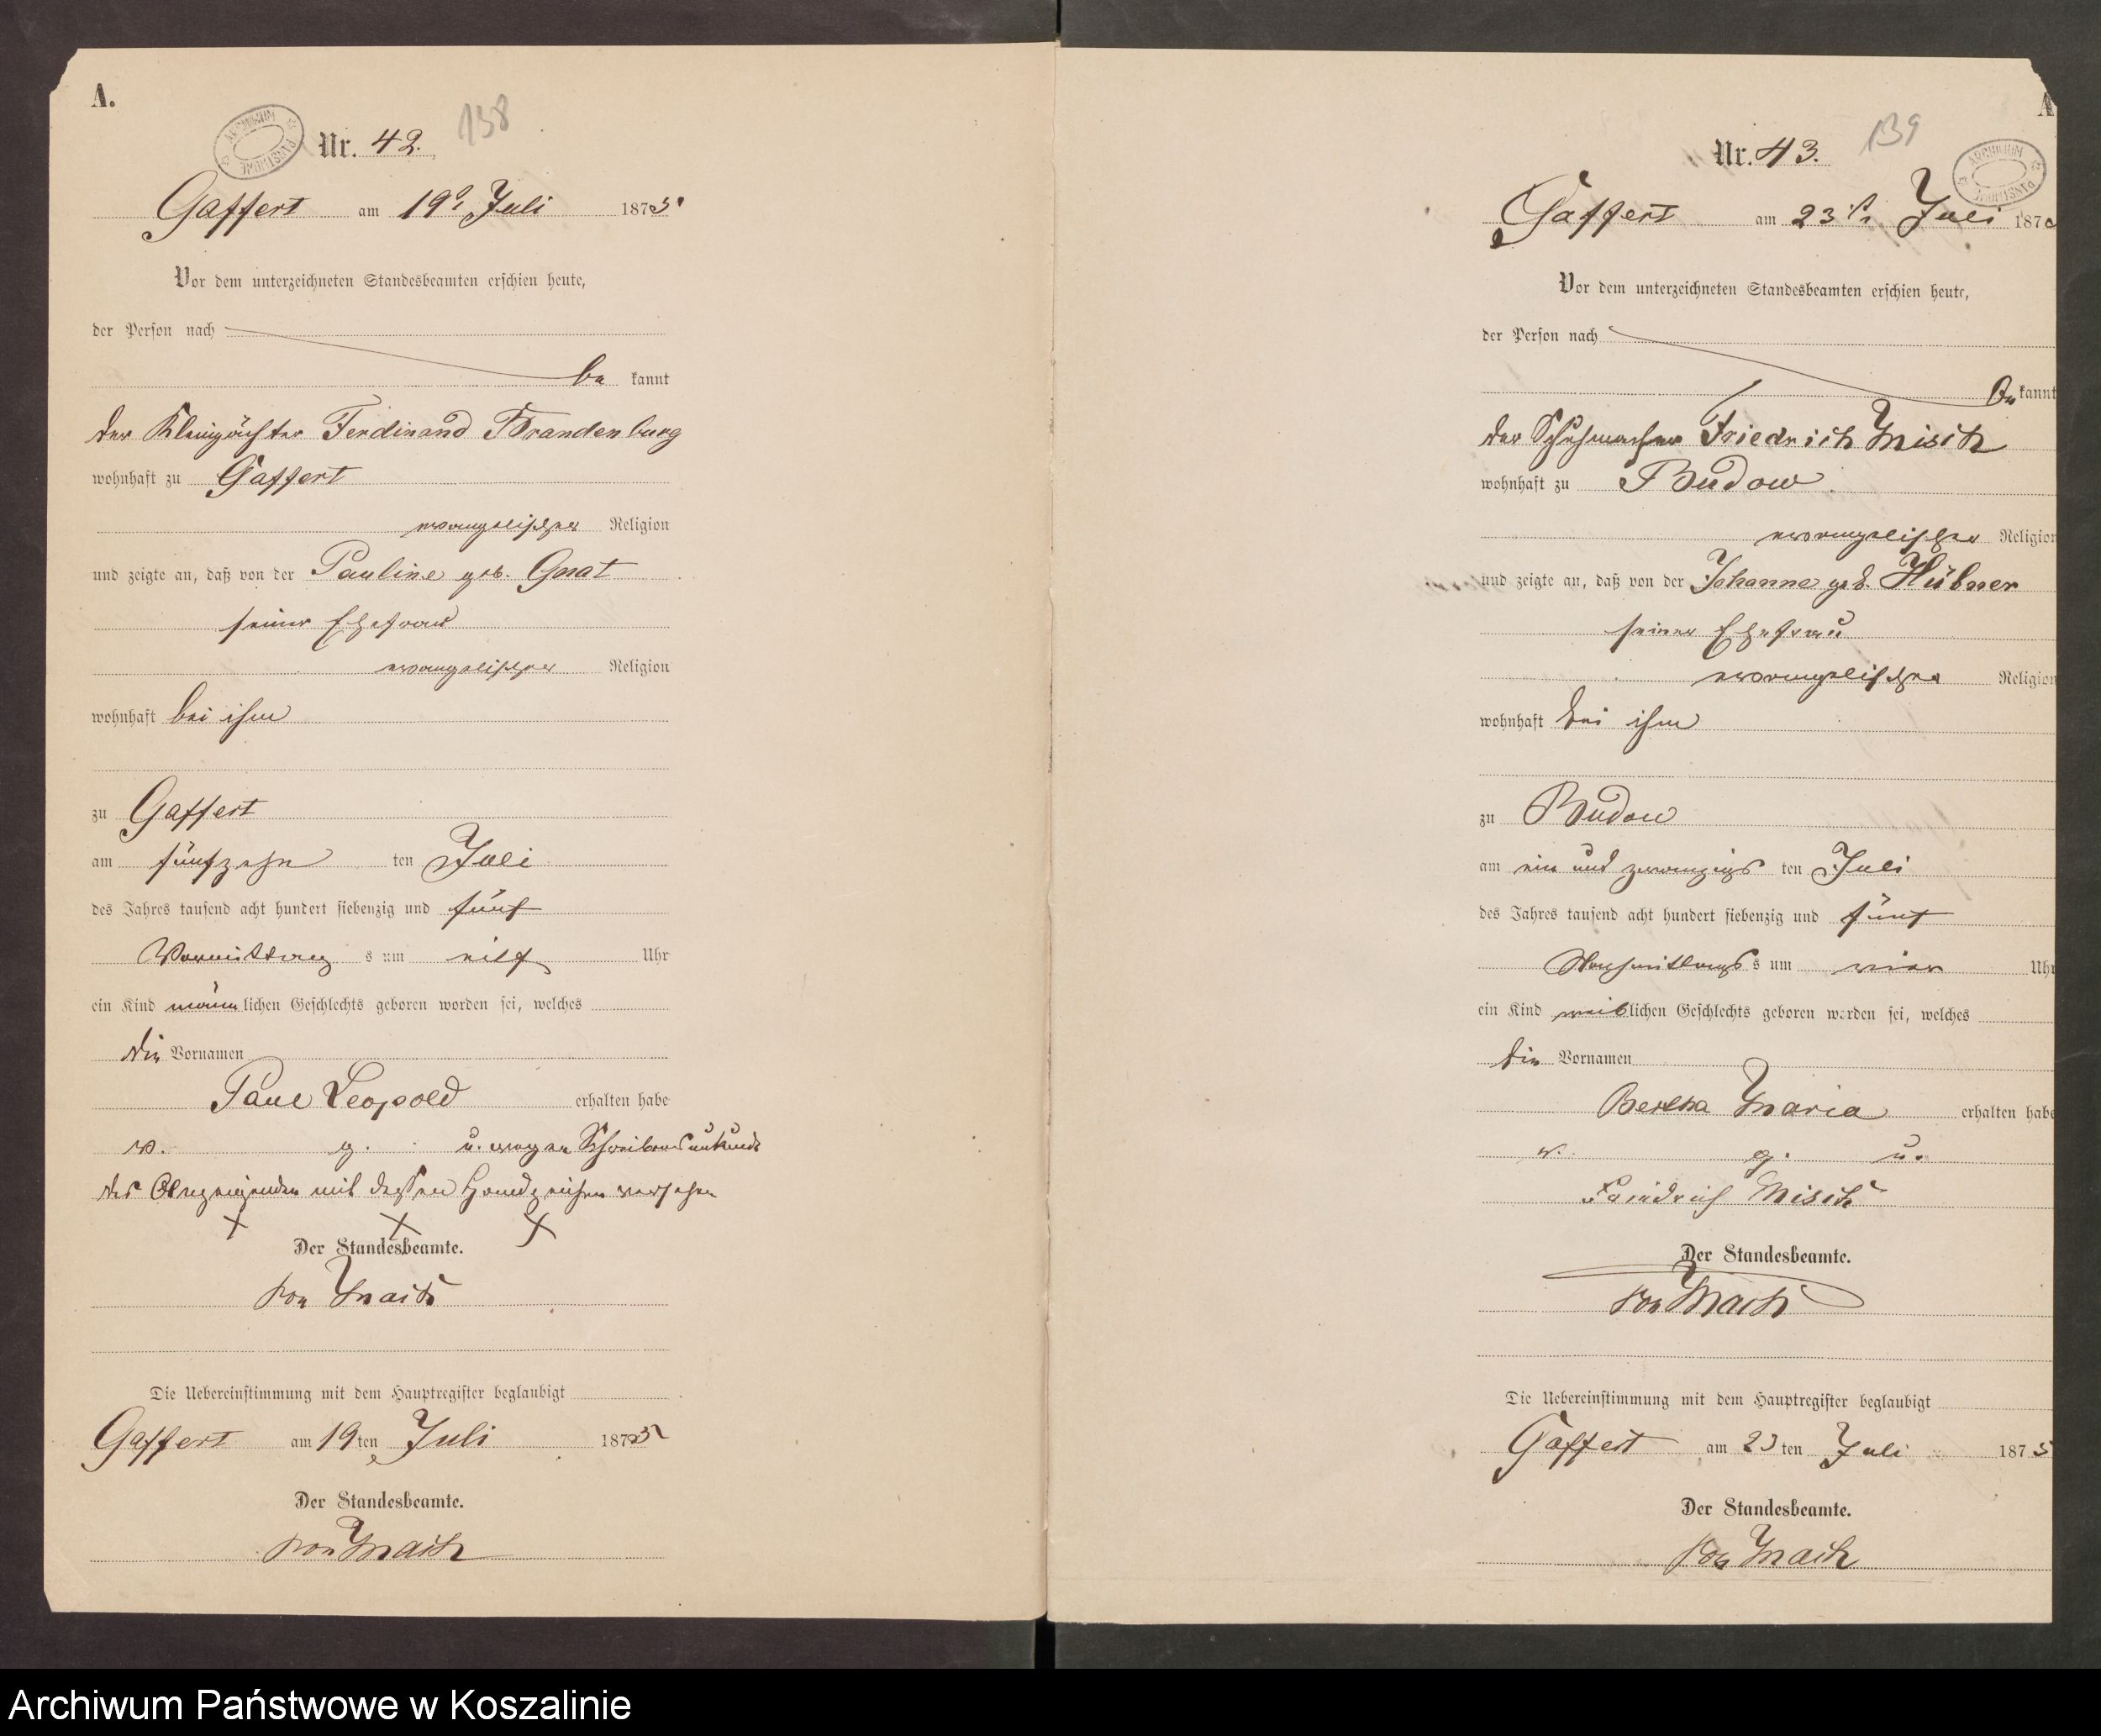 A.
138
ARCHIWUM PAŃSTWOWE
Nr. 42.
Gaffert am 19t Juli 1875
Vor dem unterzeichneten Standesbeamten erschien heute,
der Person nach
be kannt
der Kleinpächter Ferdinand Brandenburg
wohnhaft zu Gaffert
evangelischer Religion
und zeigte an, daß von der Pauline geb. Gnat
seiner Ehefrau
evangelischer Religion
wohnhaft bei ihm
zu Gaffert
am fünfzehn ten Juli
des Jahres tausend acht hundert siebenzig und fünf
Vormittag s um eilf Uhr
ein Kind männlichen Geschlechts geboren worden sei, welches
die Vornamen
Paul Leopold erhalten habe
v. g. u. wegen Schreibensunkunde
des Anzeigenden mit dessen Handzeichen versehen
X X X
Der Standesbeamte.
von Mach
Die Uebereinstimmung mit dem Hauptregister beglaubigt
Gaffert am 19 ten Juli 1875
Der Standesbeamte.
von Mach
A
139
ARCHIWUM PAŃSTWOWE
Nr. 43.
Gaffert am 23 Juli 187
Vor dem unterzeichneten Standesbeamten erschien heute,
der Person nach
be kannt
der Schuhmacher Friedrich Misch
wohnhaft zu Budow.
evangelischer Religion
und zeigte an, daß von der Johanne geb. Hübner
seiner Ehefrau
evangelischer Religion
wohnhaft bei ihm
zu Budow
am ein und zwanzigs ten Juli
des Jahres tausend acht hundert siebenzig und fünf
Nachmittags s um vier Uhr
ein Kind weiblichen Geschlechts geboren worden sei, welches
die Vornamen
Bertha Maria erhalten habe
v. g. u.
Friedrich Misch
Der Standesbeamte.
von Mach
Die Uebereinstimmung mit dem Hauptregister beglaubigt
Gaffert am 23 ten Juli 1875
Der Standesbeamte.
von Mach
Archiwum Państwowe w Koszalinie